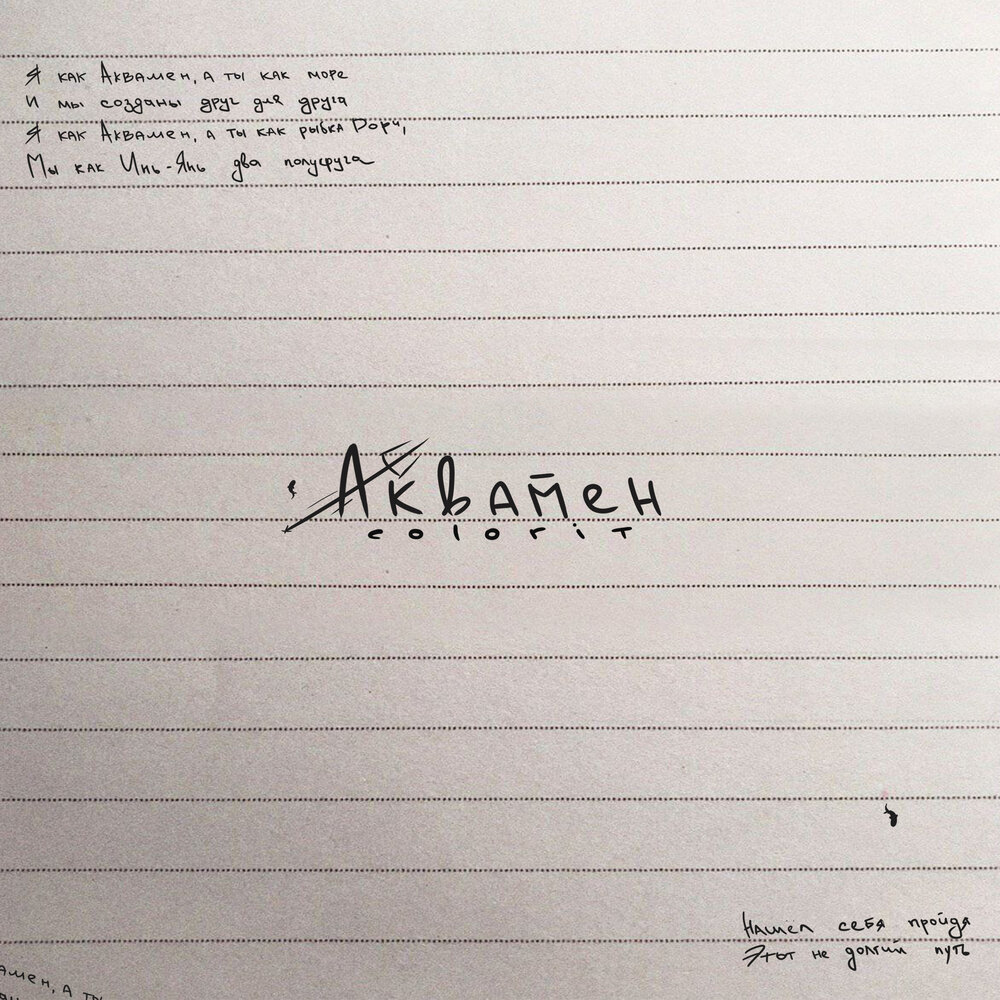 Я как Аквамен, а ты как море
И мы созданы друг для друга
Я как Аквамен, а ты как рыбка Дори,
Мы как Инь-Янь два полукруга
Аквамен
colorit
Нашел себя пройдя
Этот не долгий путь
амен, а ты